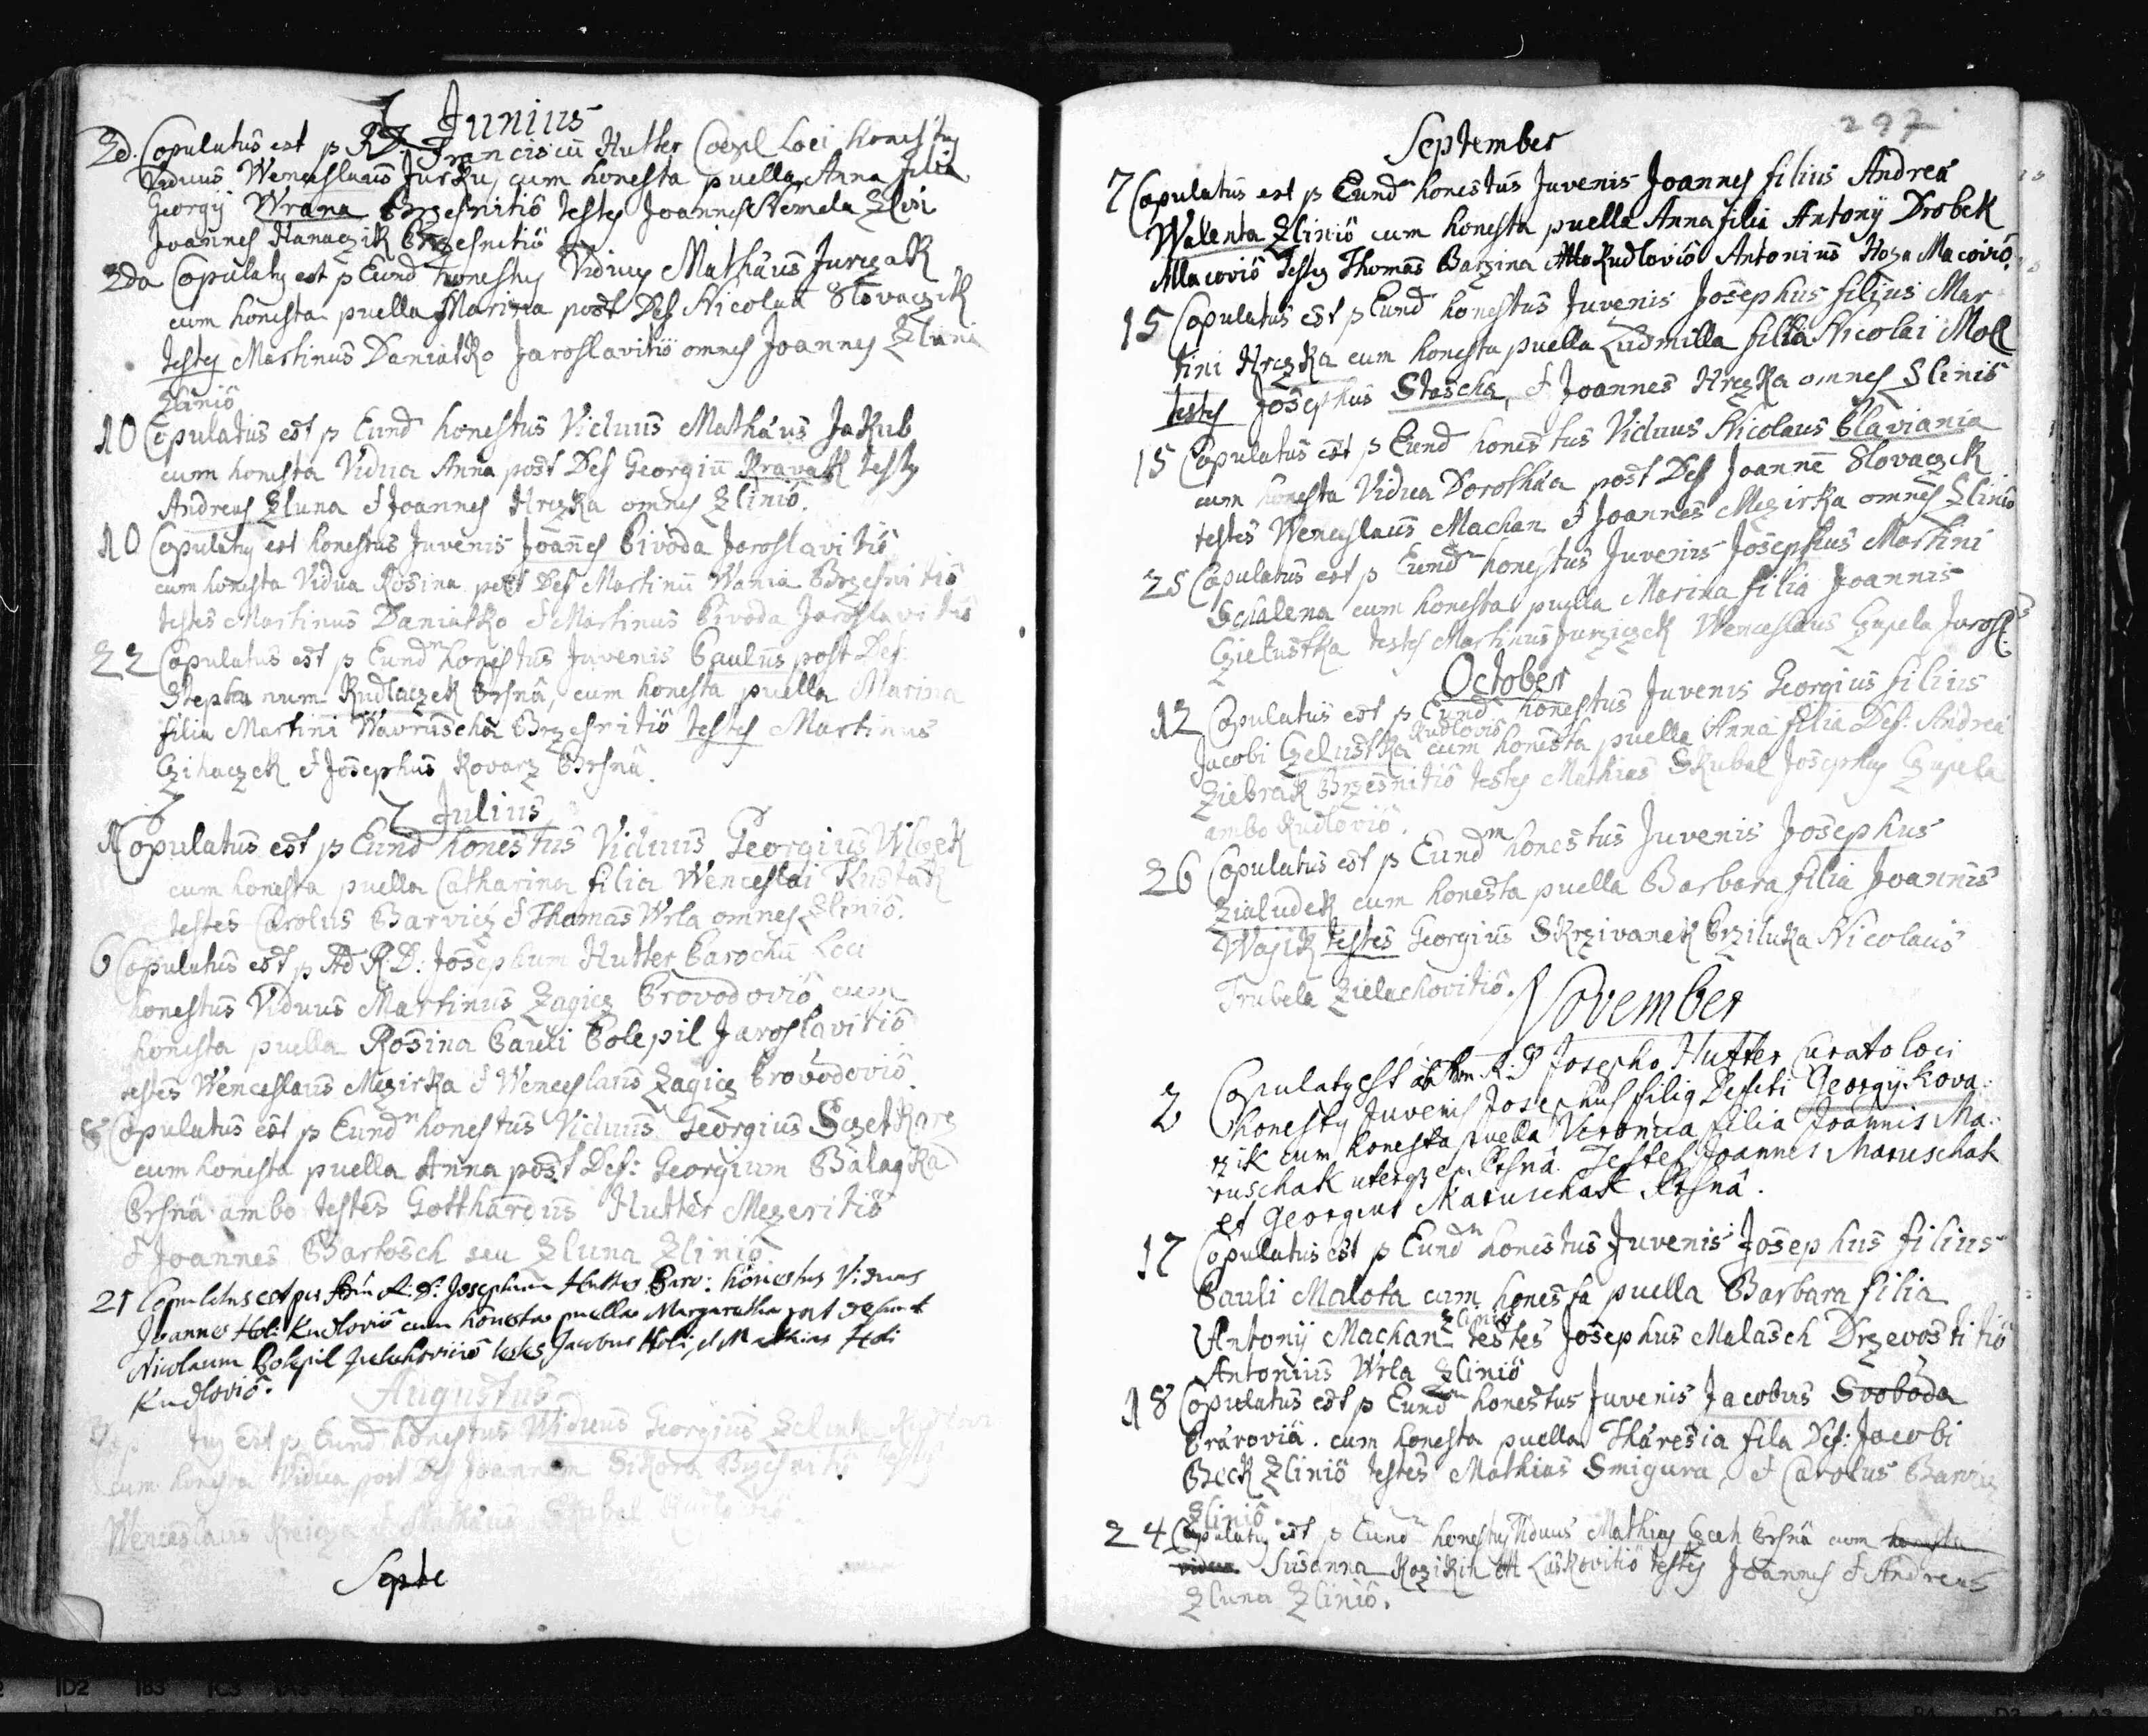 Junius
2d. Copulatus est p R D: Franciscū Hutter Coopl Loci honestus
Viduus Wenceslaus Jurku, cum honesta puella Anna filia
Georgij Wrana Brzesnitiô testes Joannes Nemela Zlini
Joannes Hanaczik Brzesnitiô
2da Copulatus est p Eund honestus Viduus Mathäus Jurczak
cum honesta puella Marina post Def Nicolaū Slovaczik
testes Martinus Daniatko Jaroslavitiô omnes Joannes Zluna
Zliniô
10 Copulatus est p Eund honestus Viduus Mathäus Jakub
cum honesta Vidua Anna post Def Georgiū Kravak testes
Andreas Zluna & Joannes Hrczka omnes Zliniô.
10 Copulatus est honestus Juvenis Joannes Pivoda Jaroslavitiô
cum honesta Vidua Rosina post Def Martinū Wania Brzesnitiô
testes Martinus Daniatko & Martinus Pivoda Jaroslavitiô
22 Copulatus est p Eundm honestus Juvenis Paulus post Def:
Stephanum Rudlaczek Prsnâ, cum honesta puella Marina
filia Martini Wavruscha Brzesnitiô testes Martinus
Czihaczek & Josephus Kovarz Prsnâ.
Julius
1 Copulatus est p Eund honestus Viduus Georgius Wlcek
cum honesta puella Catharina filia Wenceslai Kustak
testes Carolus Barvicz & Thomas Wrla omnes Zliniô.
6 Copulatus est p Ad R. D: Josephum Hutter Parochū Loci
honestus Viduus Martinus Zagicz Provodoviô cum
honesta puella Rosina Pauli Polepil Jaroslavitiô
testes Wenceslaus Mezirka & Wenceslaus Zagicz Provodoviô.
8 Copulatus est p Eundm honestus Viduus Georgius Sczetkarz
cum honesta puella Anna post Def: Georgium Balaska
Prsnâ ambo testes Gotthardus Hutter Mezeritiô
& Joannes Bartosch seu Zluna Zliniô.
21 Copulatus est per Adm R: D: Josephum Hutter Paro: honestus Viduus
Joannes Holi Kudloviô cum honesta puella Margaretha post defunct
Nicolaum Polepil testes Jacobus Holi, et Mathias Holi
Kudloviô.
Augustus
tus est p Eund honestus Viduus Georgius Zelinka
cum honesta Vidua post Def Joannem Sikora Brzesnitiô testes
Wenceslaus & Mathäus Skubal Kudloviô.
Septe
297
September
7 Copulatus est p Eundm honestus Juvenis Joannes filius Andrea
Walenta Zliniô cum honesta puella Anna filia Antonij Drobek
Mlacoviô testes Thomas Barzina Kudloviô Antonius Hoza Macoviô.
15 Copulatus est p Eund honestus Juvenis Josephus filius Mar
tini Hrczka cum honesta puella Ludmilla filia Nicolai Moll
testes Josephus Stascha, & Joannes Hrczka omnes Slinis
15 Copulatus est p Eund honestus Viduus Nicolaus Plaviania
cum honesta Vidua Dorothäa post Def Joannē Slovaczek
testes Wenceslaus Machan & Joannes Mezirka omnes Zliniô
25 Copulatus est p Eundm honestus Juvenis Josephus Martini
Schalena cum honesta puella Marina filia Joannis
Czielustka testes Martinus Jurziczek Wenceslaus Czupela Jarosl:
October
12 Copulatus est p Eund honestus Juvenis Georgius filius
Jacobi Czelustka Kudloviô cum honesta puella Anna filia Def: Andrea
Ziebrak Brzesnitiô testes Mathias Skubal Josephus Czupela
ambo Kudloviô.
26 Copulatus est p Eundm honestus Juvenis Josephus
Zialudek cum honesta puella Barbara filia Joannis
Wajik testes Georgius Skrzivanek Prziluka Nicolaus
Trubela Zielechovitiô.
November
2 Copulatus est ab Adm R: D Josepho Hutter Curato loci
honestus Juvenis Josephus filius Defuti Georgij Kova:
rzik cum honesta puella Veronica filia Joannis Ma:
ruschak uterqz ex Prsnâ. Testes Joannes Maruschak
et Georgius Maruschak Prsnâ.
17 Copulatus est p Eundm honestus Juvenis Josephus filius
Pauli Malota cum honesta puella Barbara filia
Antonij Machan Zliniô testes Josephus Malasch Drzevostitiô
Antonius Wrla Zliniô
18 Copulatus est p Eundm honestus Juvenis Jacobus Svoboda
Prâroviâ. cum honesta puella Thäresia fila Def: Jacobi
Beck Zliniô testes Mathias Smigura, & Carolus Barvicz
Zliniô.
24 Copulatus est p Eundm honestus Viduus Mathias Czech Prsnâ cum honesta
vidua Susanna Kozikin Laskovitiô testes Joannes & Andreas
Zluna Zliniô.